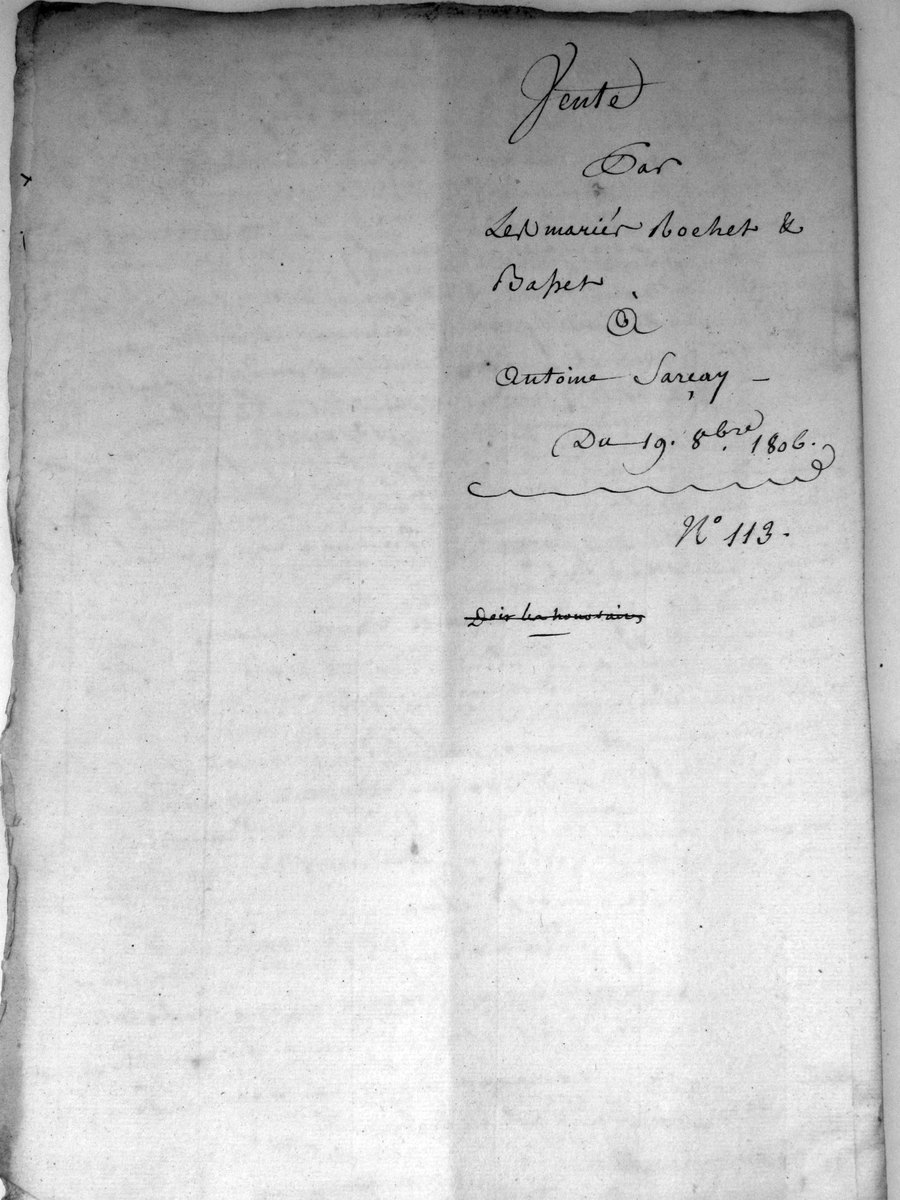 Vente
Par
Les mariés Rochet &
Basset
à
Antoine Sarçay
Du 19. 8bre. 1806.
N° 113.
Doit les honoraires